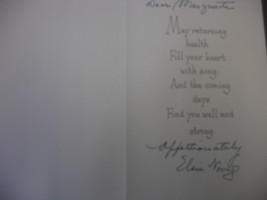 Dear Marguerite
May returning
health
Fill your heart
with song,
And the coming
days
Find you well and
strong.
Affectionately
Elsie